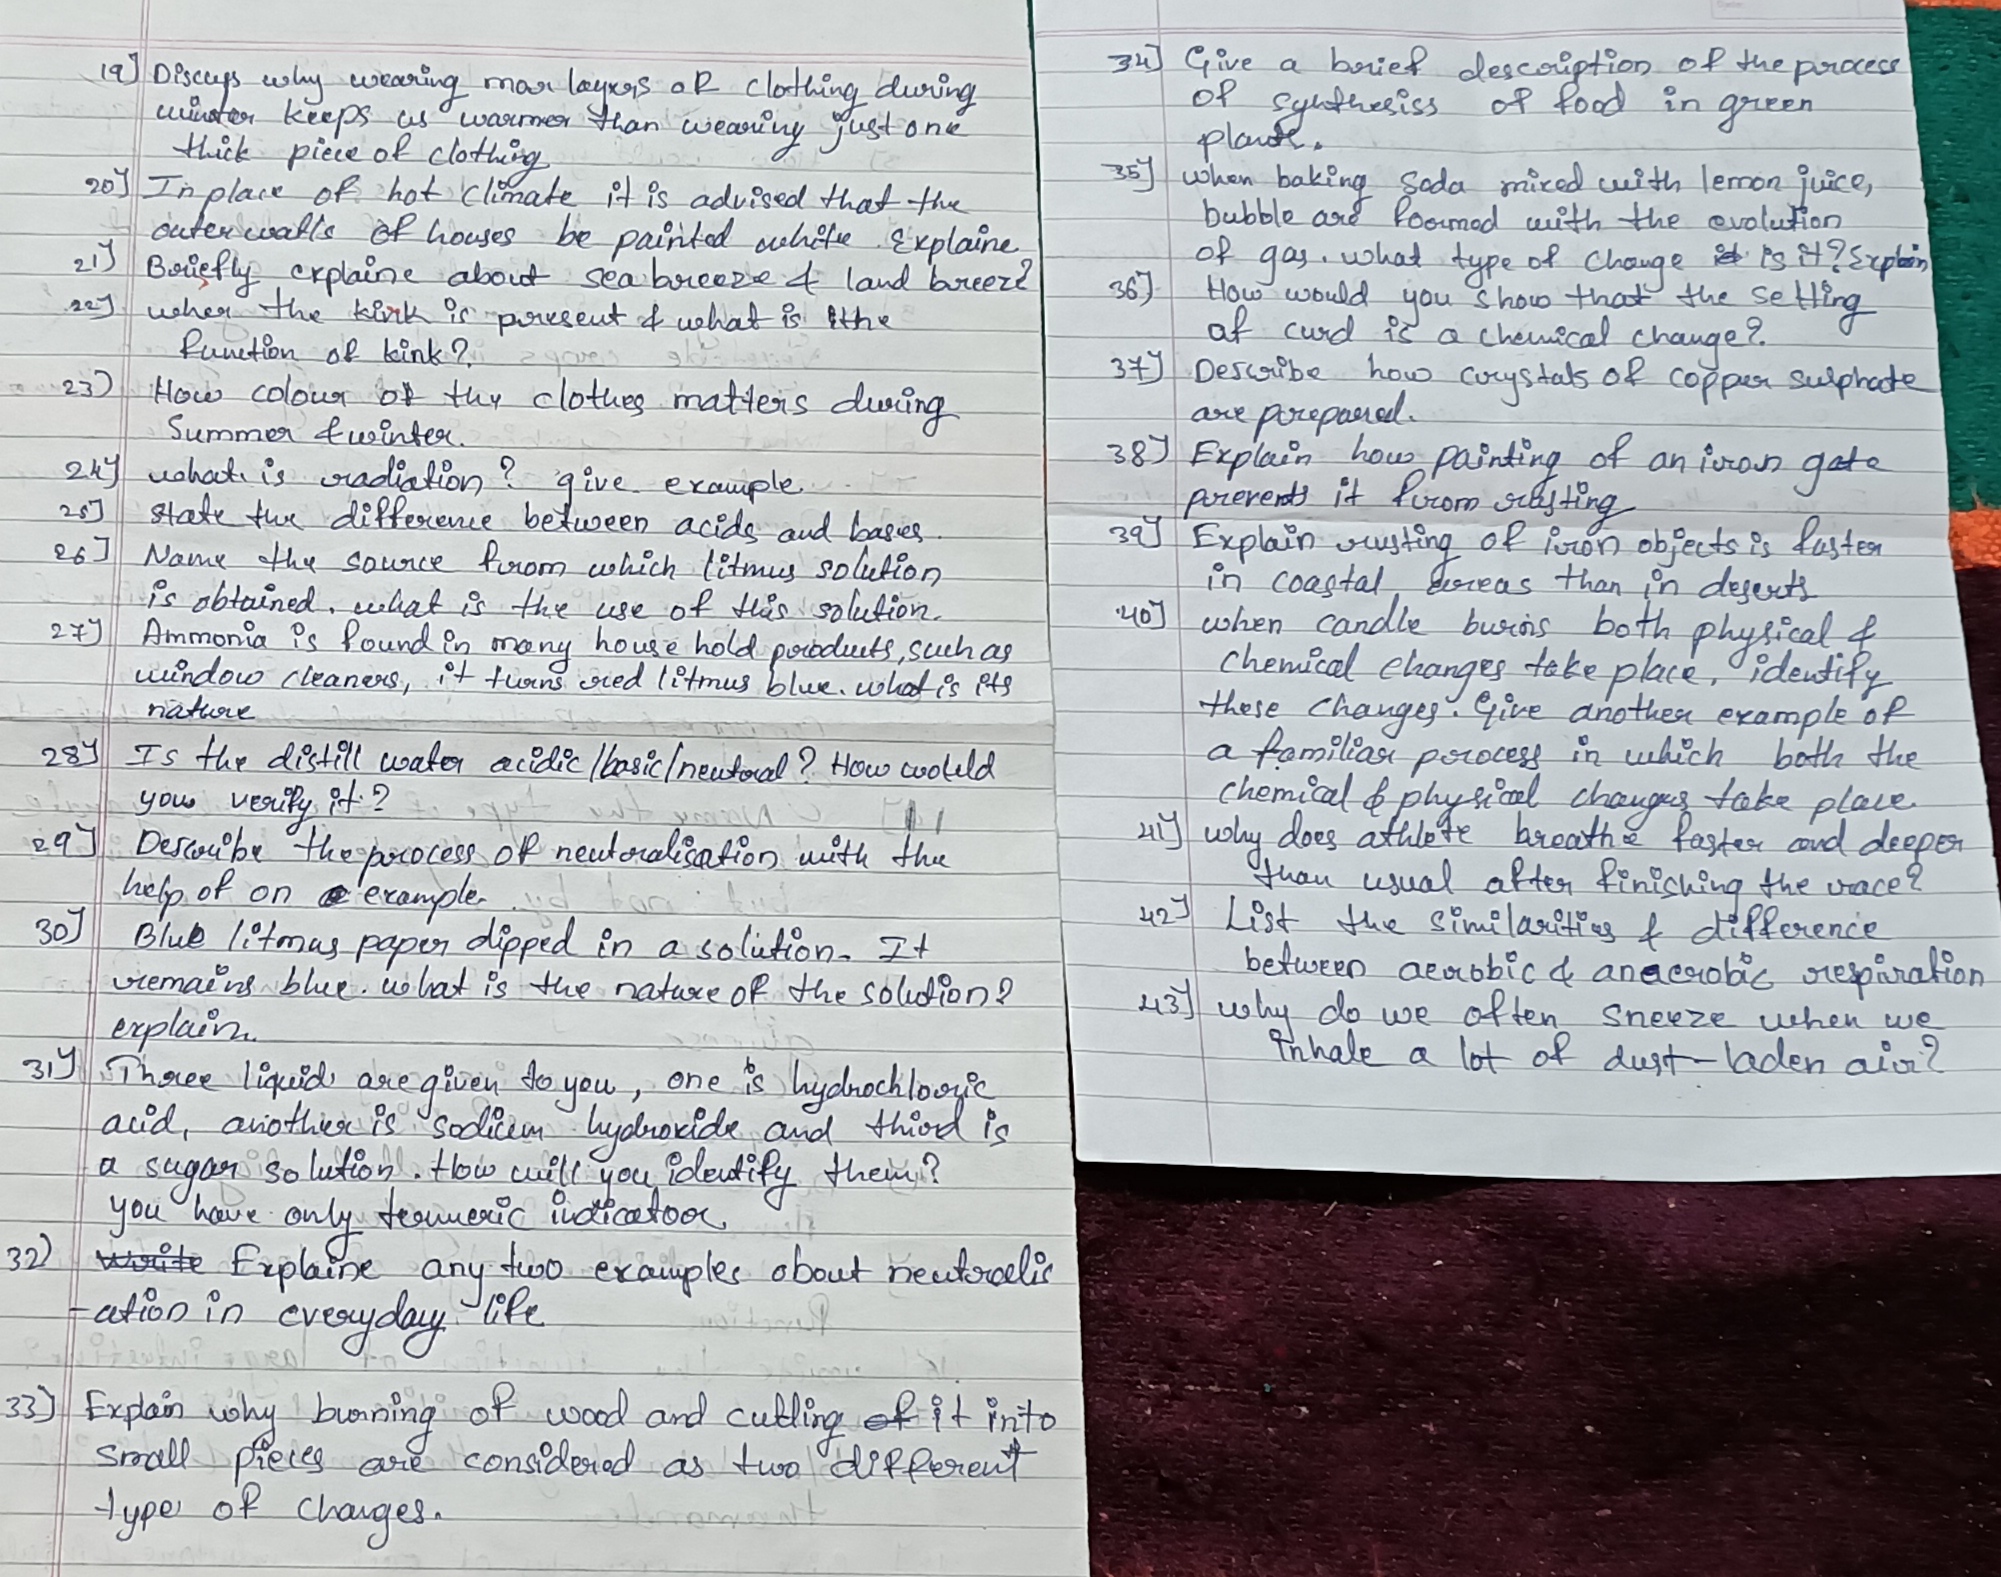 19] Discuss why wearing mor layers of clothing during
winter keeps us warmer than wearing just one
thick piece of clothing
20] In place of hot climate it is advised that the
outer walls of houses be painted white. Explaine
21] Boriefly explaine about sea breeze & land breeze?
22] wher the kink is present & what is the
function of kink?
23) How colour of the clothes matters during
Summer & winter.
24] what is radiation? give example
25] state the difference between acids and bases.
26] Name the source from which litmus solution
is obtained. what is the use of this solution.
27] Ammonia is found in many house hold products, such as
window cleaners, it turns red litmus blue. what is its
nature
28] Is the distill water acidic/basic/neutral? How would
you verify it?
29] Describe the process of neutralisation with the
help of on example.
30] Blue litmus paper dipped in a solution. It
remains blue. what is the nature of the solution?
explain.
31] Three liquids are given to you, one is hydrochloric
acid, another is sodium hydroxide and third is
a sugar solution. How will you identify them?
you have only termeric indicatoor
32) Write Explaine any two examples about neutralis
-ation in everyday life
33) Explain why burning of wood and cutting of it into
small pieces are considered as two different
type of changes.
34] Give a brief description of the process
of synthesiss of food in green
35] when baking soda mixed with lemon juice,
bubble are formed with the evolution
of gas. what type of change is it? Explain
36] How would you show that the setting
of curd is a chemical change?
37] Describe how crystals of copper sulphate
are prepared.
38] Explain how painting of an iron gate
prevents it from rusting
39] Explain rusting of iron objects is faster
in coastal areas than in deserts
40] when candle burns both physical &
chemical changes take place, identify
these changes. Give another example of
a familiar process in which both the
chemical & physical changes take place
41] why does athlete breathe faster and deeper
than usual after finishing the race?
42] List the similarities & difference
between aerobic & anaerobic respiration
43] why do we often sneeze when we
inhale a lot of dust-laden air?